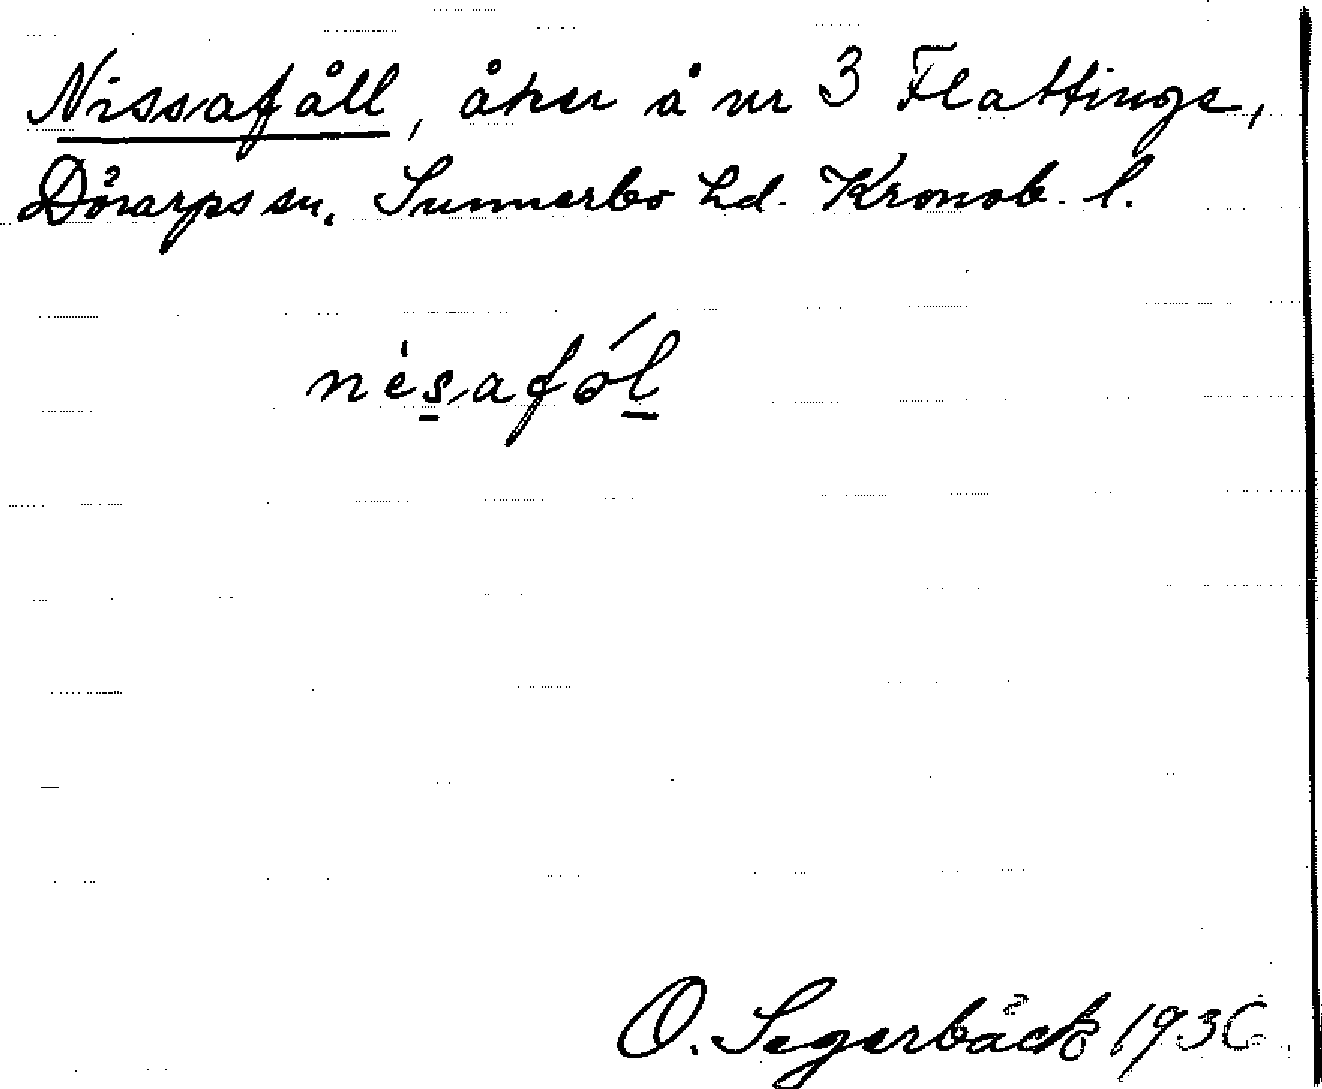 Nissafåll, åker å nr 3 Flattinge,
Dörarps sn. Sunnerbo hd. Kronob. l.
nèsafål
O. Segerbäck 1936